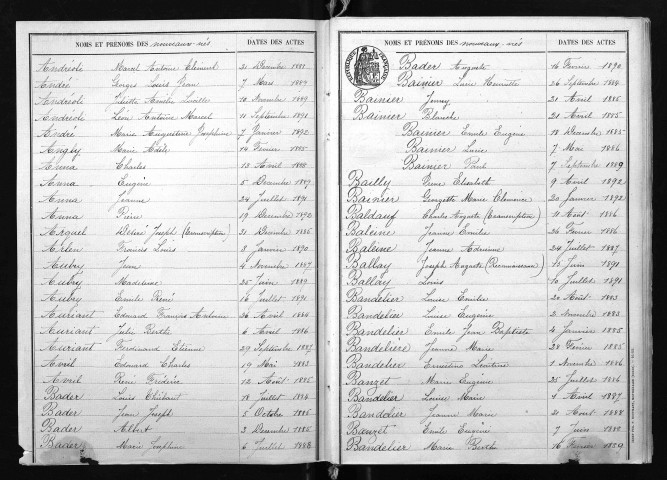 NOMS ET PRÉNOMS DES nouveaux-nés DATES DES ACTES
Andréole Marcel Antoine Clément 31 Décembre 1888
André Georges Louis Jean 7 Mars 1889
Andréole Juliette Amélie Lucille 10 Novembre 1889
Andréole Léon Antoine Marcel 11 Septembre 1891
André Marie Augustine Joséphine 7 Janvier 1892
Angly Marie Adèle 14 Février 1885
Anna Charles 13 Avril 1888
Anna Eugène 5 Décembre 1889
Anna Jeanne 24 Juillet 1891
Anna Pierre 19 Décembre 1892
Joseph 31 Décembre 1886
Francis Louis 8 Janvier 1890
Aubry Jean 4 Novembre 1887
Aubry Madeleine 25 Juin 1889
Aubry Emile René 16 Juillet 1891
Auriant Edouard François Antoine 26 Avril 1884
Auriant Julie Berthe 6 Avril 1886
Auriant Ferdinand Etienne 29 Septembre 1887
Avril Edouard Charles 19 Mai 1883
Avril René Frédéric 12 Août 1885
Bader Louis Thiébaut 18 Juillet 1884
Bader Jean Joseph 5 Octobre 1885
Bader Albert 3 Décembre 1885
Bader Marie Joséphine 6 Juillet 1888
NOMS ET PRÉNOMS DES nouveaux-nés DATES DES ACTES
Bader Auguste 16 Février 1890
Bainier Lucie Henriette 26 Septembre 1884
Bainier Jenny 21 Avril 1885
Bainier Blanche 21 Avril 1885
Bainier Emile Eugène 18 Décembre 1885
Bainier Lucie 7 Mai 1886
Bainier Paul 7 Septembre 1889
Bailly René Elisabeth 9 Avril 1892
Bainier Georgette Marie Clémence 20 Janvier 1892
Baldauf Charles Auguste 11 Août 1886
Baleine Jeanne Emilie 26 Février 1886
Baleine Jeanne Adrienne 24 Juillet 1887
Ballay Joseph Auguste (Reconnaissance) 10 Juin 1891
Ballay Louis 10 Juillet 1891
Bandelier Louise Emilie 20 Août 1883
Bandelier Louise Eugénie 2 Novembre 1883
Bandelier Emile Jean Baptiste 4 Janvier 1885
Bandelier Jeanne Marie 28 Février 1885
Bandelier Ernestine Léontine 1 Novembre 1886
Banzet Marie Eugénie 25 Juillet 1886
Bandelier Louise Marie 1 Avril 1887
Bandelier Jeanne Marie 31 Août 1888
Banzet Emile Eugène 7 Juin 1888
Bandelier Marie Berthe 16 Février 1889